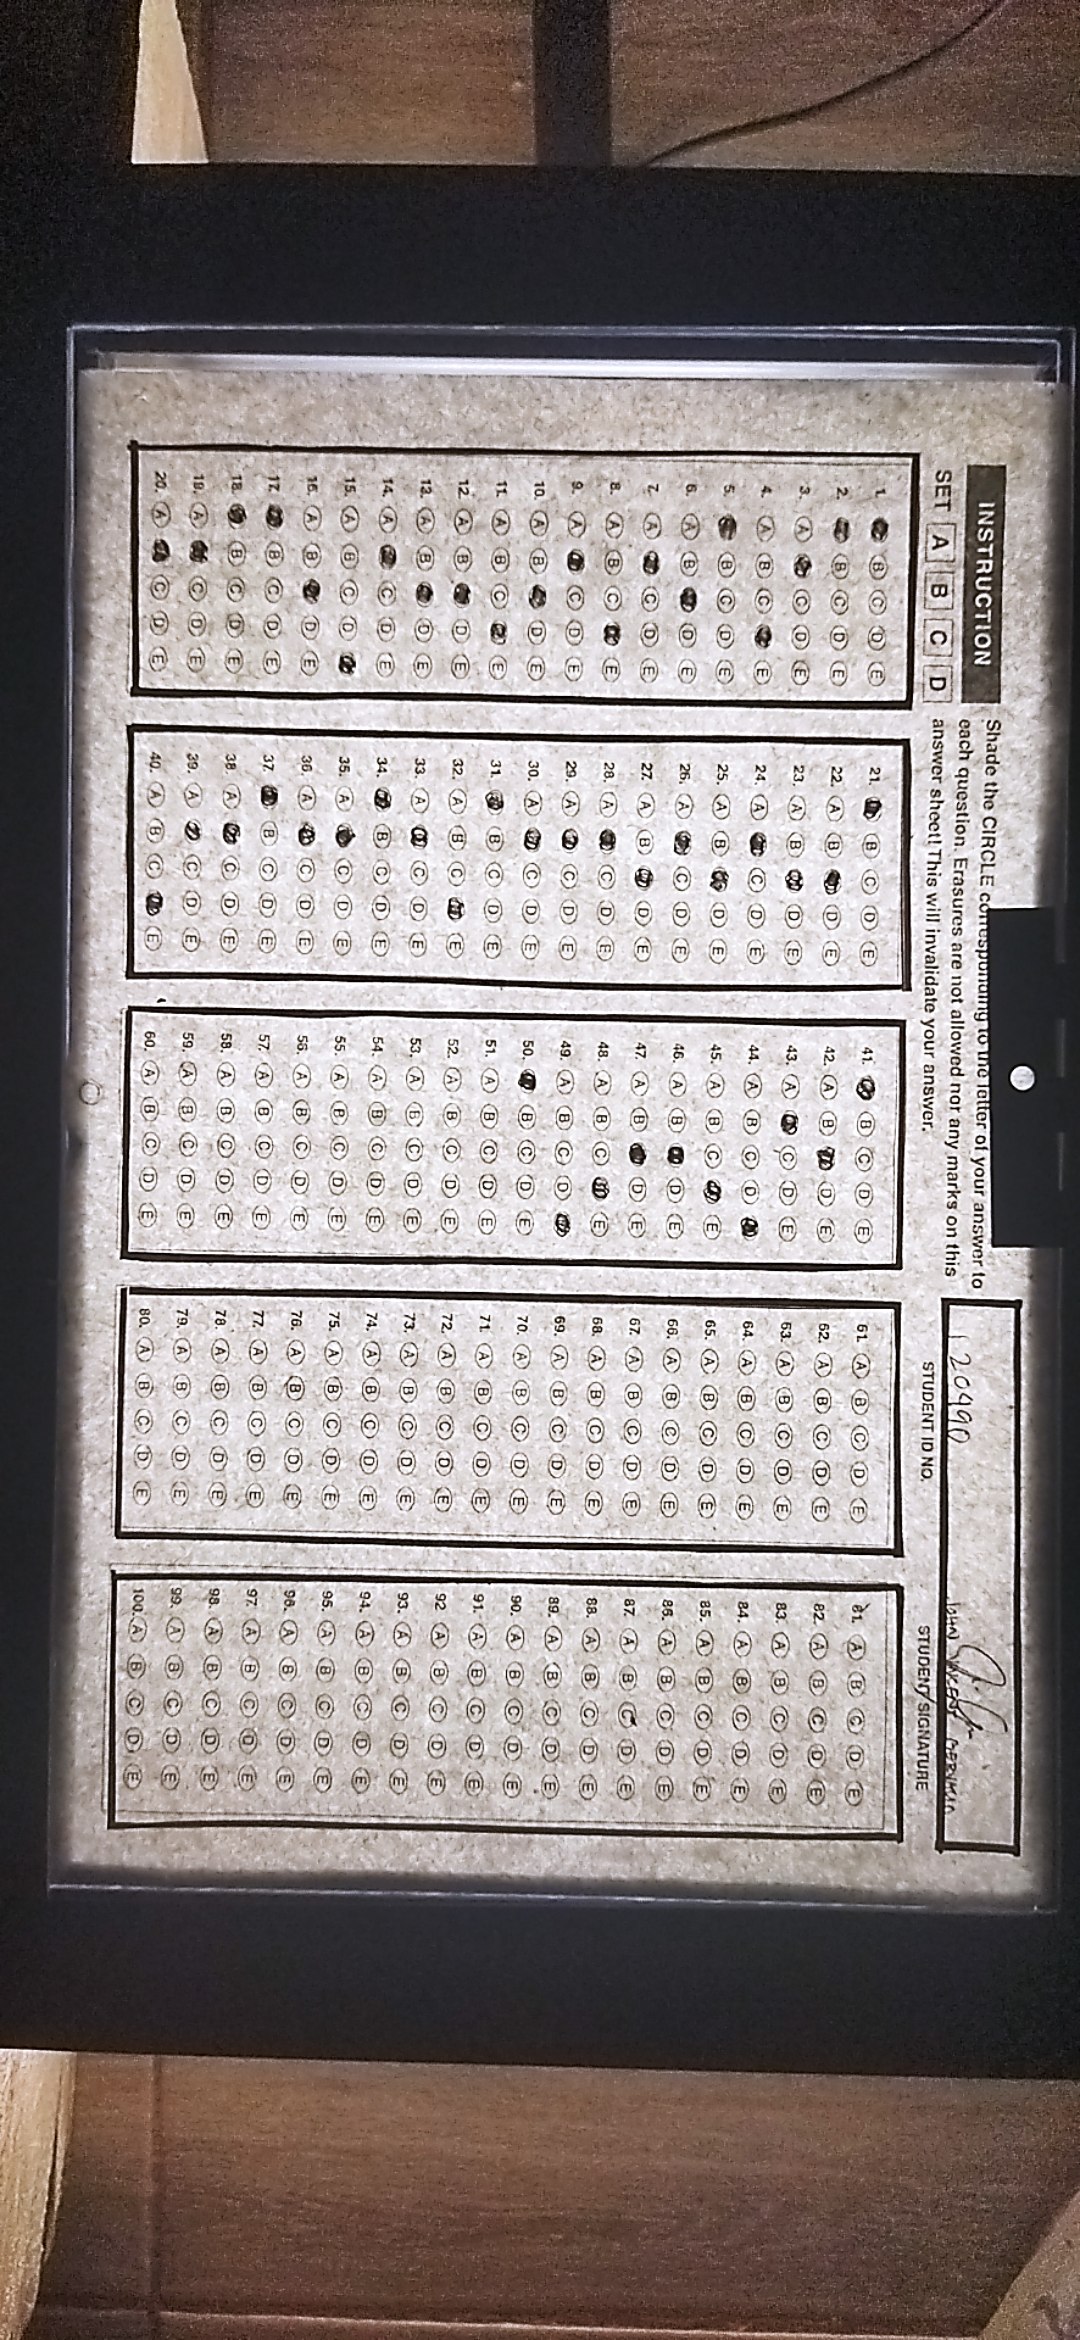 INSTRUCTION
SET A B C D
Shade the CIRCLE corresponding to the letter of your answer to
each question. Erasures are not allowed nor any marks on this
answer sheet! This will invalidate your answer.
120490
JOHN VINCENT
STUDENT ID NO.
STUDENT SIGNATURE
1. B C D E
2. B C D E
3. A C D E
4. A B C E
5. B C D E
6. A B D E
7. A C D E
8. A B C E
9. A C D E
10. A B D E
11. A B C E
12. A B D E
13. A B D E
14. A C D E
15. A B C D
16. A B D E
17. B C D E
18. B C D E
19. A C D E
20. A C D E
21. B C D E
22. A B D E
23. A B D E
24. A C D E
25. A B D E
26. A C D E
27. A B D E
28. A C D E
29. A C D E
30. A C D E
31. B C D E
32. A B C E
33. A C D E
34. B C D E
35. A C D E
36. A C D E
37. B C D E
38. A C D E
39. A C D E
40. A B C E
41. B C D E
42. A B D E
43. A C D E
44. A B C D
45. A B C E
46. A B D E
47. A B D E
48. A B C E
49. A B C D
50. B C D E
51. A B C D E
52. A B C D E
53. A B C D E
54. A B C D E
55. A B C D E
56. A B C D E
57. A B C D E
58. A B C D E
59. A B C D E
60. A B C D E
61. A B C D E
62. A B C D E
63. A B C D E
64. A B C D E
65. A B C D E
66. A B C D E
67. A B C D E
68. A B C D E
69. A B C D E
70. A B C D E
71. A B C D E
72. A B C D E
73. A B C D E
74. A B C D E
75. A B C D E
76. A B C D E
77. A B C D E
78. A B C D E
79. A B C D E
80. A B C D E
81. A B C D E
82. A B C D E
83. A B C D E
84. A B C D E
85. A B C D E
86. A B C D E
87. A B C D E
88. A B C D E
89. A B C D E
90. A B C D E
91. A B C D E
92 A B C D E
93. A B C D E
94. A B C D E
95. A B C D E
96. A B C D E
97. A B C D E
98. A B C D E
99. A B C D E
100. A B C D E